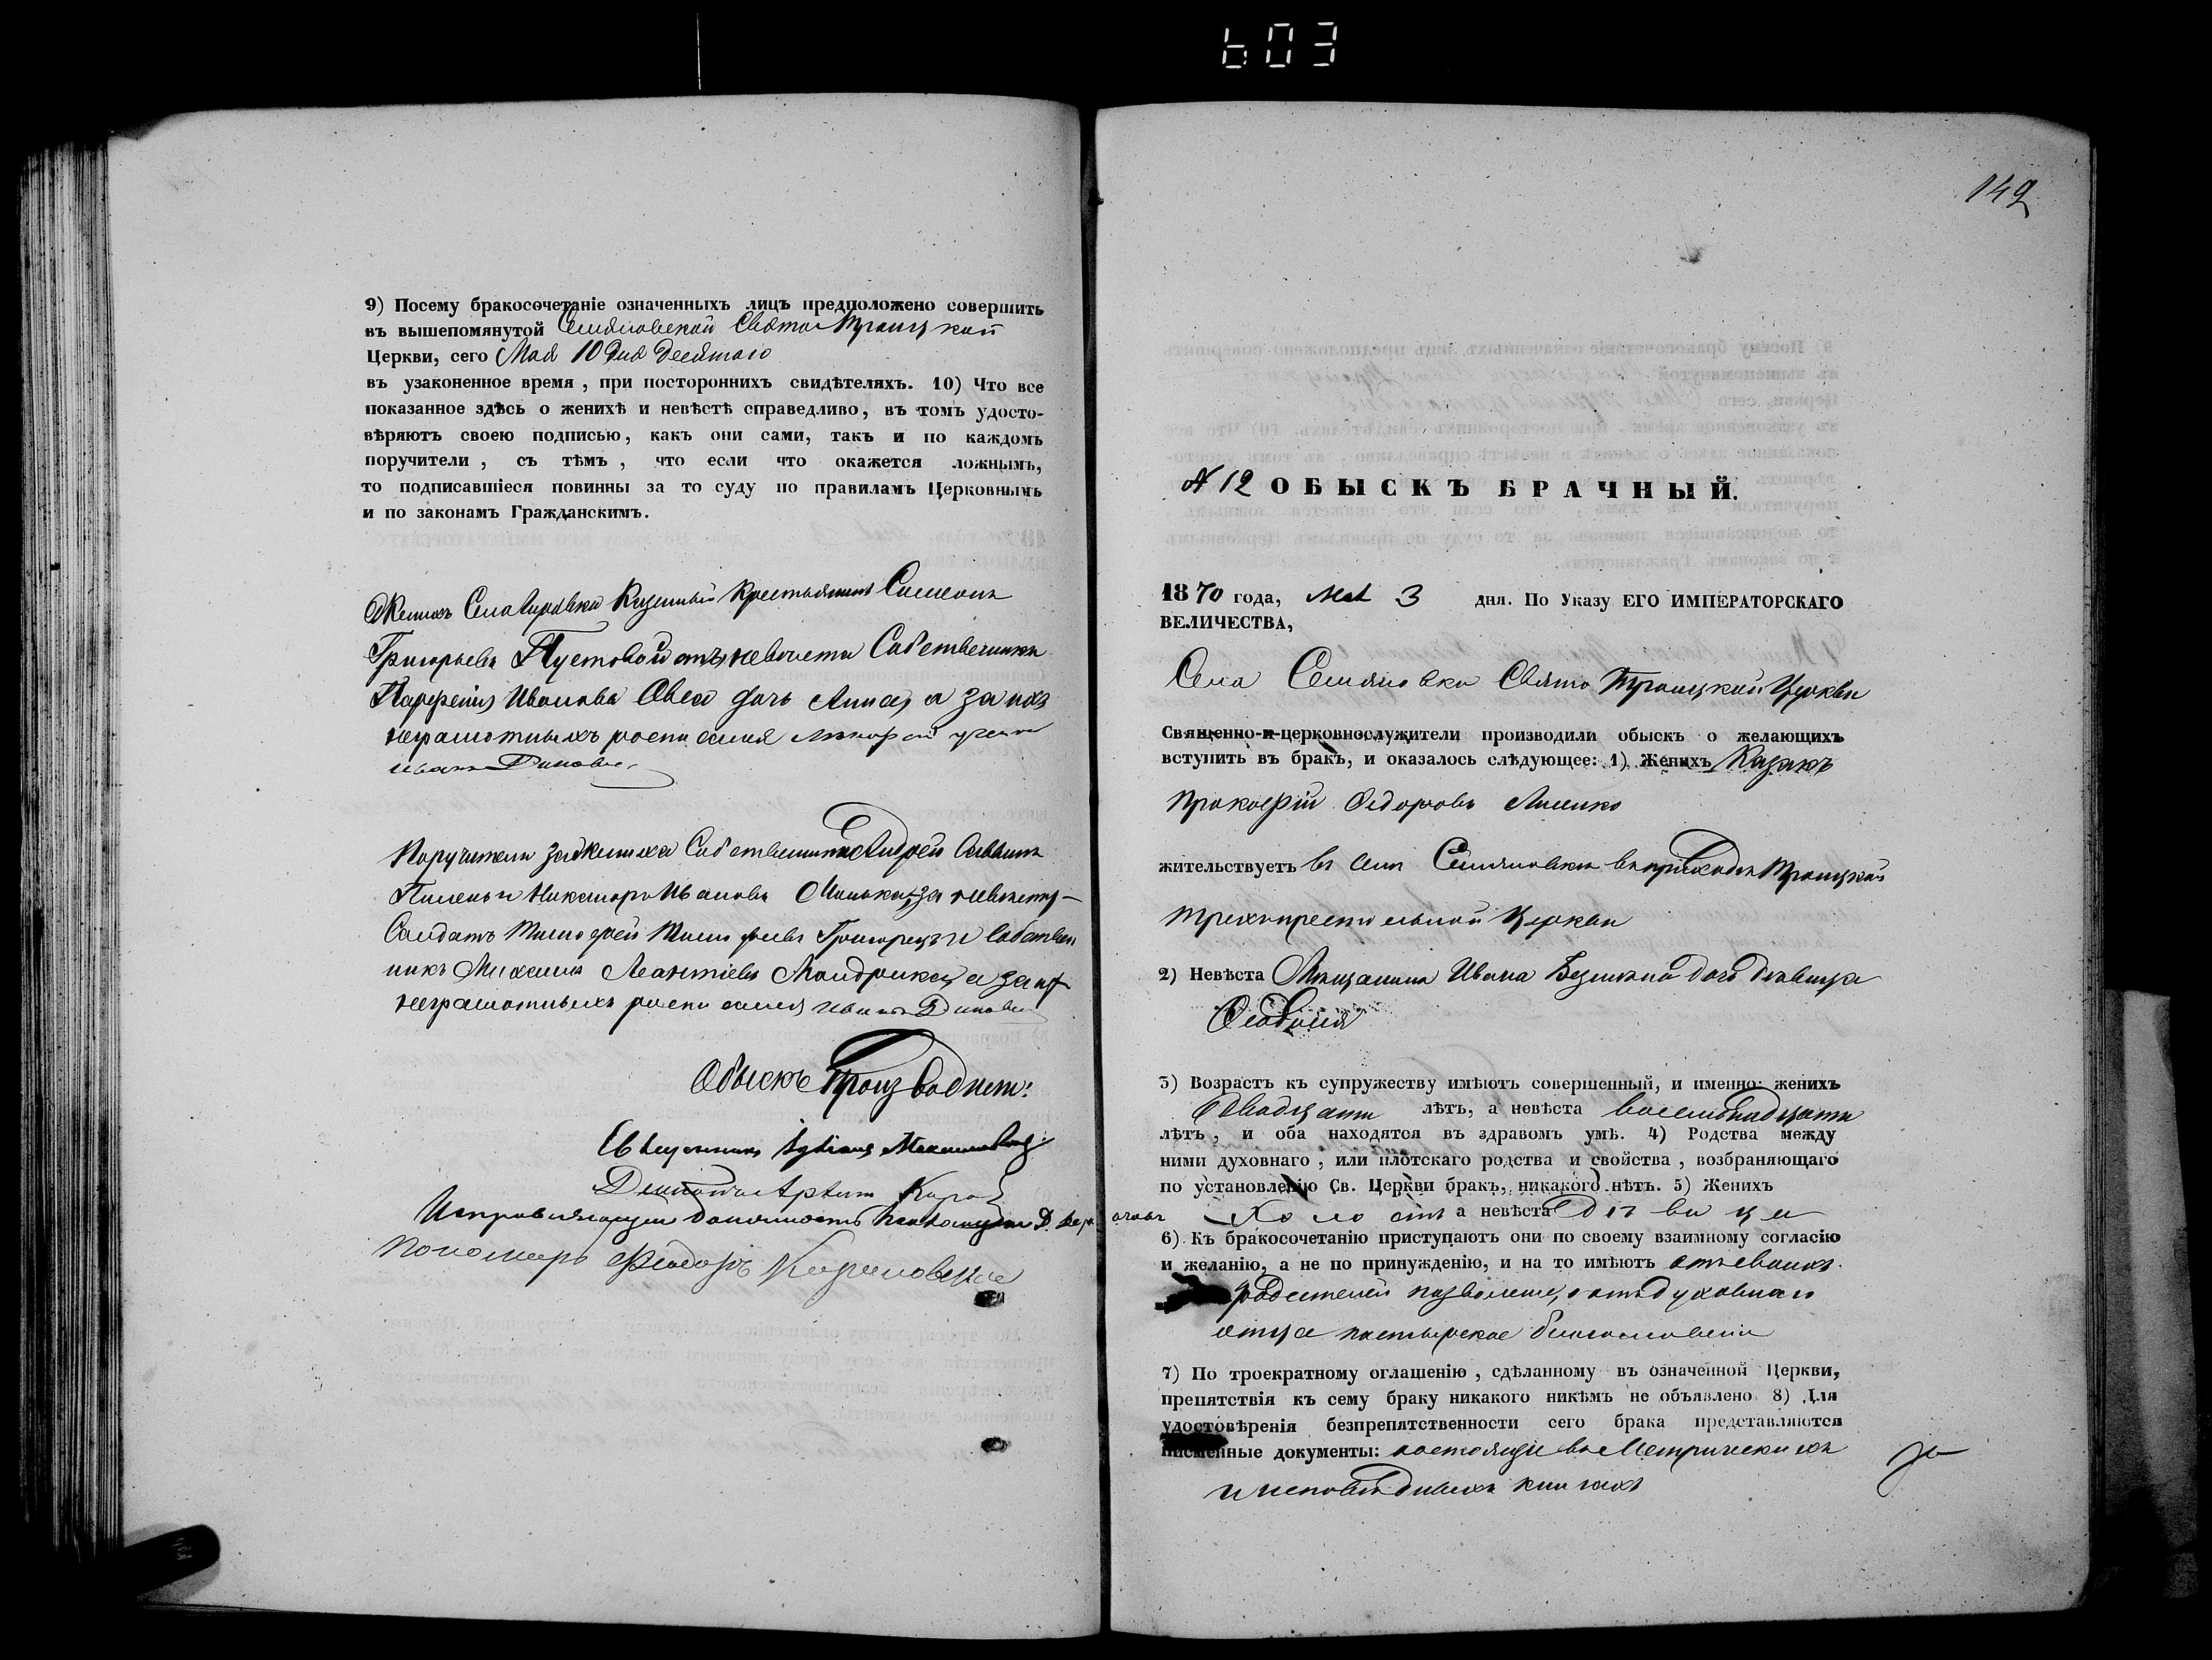 603
9) Посему бракосочетаніе означенныхъ лицъ предположено совершить
въ вышепомянутой Семяновской Свято Троицкой
Церкви, сего Мая 10 дня десятаго
въ узаконенное время, при постороннихъ свидѣтеляхъ. 10) Что все
показанное здѣсь о женихѣ и невѣстѣ справедливо, въ томъ удосто-
вѣряютъ своею подписью, какъ они сами, такъ и по каждомъ
поручители, съ тѣмъ, что если что окажется ложнымъ,
то подписавшіеся повинны за то суду по правиламъ Церковнымъ
и по законамъ Гражданскимъ.
Женихъ Села Казенный Крестьянинъ Симеонъ
Григорьевъ Пустовой отъ невѣсты Собственника
Парфенія Иванова дочь Анна, а за нихъ
неграмотныхъ росписался
Иванъ
Поручители за жениха Собственники Андрей Саввинъ
и Никаноръ Ивановъ за невѣсту
Солдатъ Тимофей Тимофеевъ и Собствен
никъ Михаилъ Леонтіевъ Мандрика, а за
неграмотныхъ росписался Иванъ
Обыскъ Производили:
Священникъ Іуліанъ Максимовичъ
Дьяконъ
Исправляющій должность Псаломщика Д.
Пономарь Феодоръ
149
№ 12 ОБЫСКЪ БРАЧНЫЙ.
1870 года, Мая 3 дня. По Указу ЕГО ИМПЕРАТОРСКАГО
ВЕЛИЧЕСТВА,
Села Семяновки Свято Троицкой Церкви
Священно-и-церковнослужители производили обыскъ о желающихъ
вступить въ бракъ, и оказалось слѣдующее: 1) Женихъ Казакъ
Прокофій Федоровъ Лисенко
жительствуетъ въ селѣ Семяновки въ приходѣ Троицкой
трехпрестольной Церкви
2) Невѣста Мѣщанина Ивана дочь дѣвица
Феодосія
3) Возрастъ къ супружеству имѣютъ совершенный, и именно: женихъ
двадцати лѣтъ, а невѣста восемнадцати
лѣтъ, и оба находятся въ здравомъ умѣ. 4) Родства между
ними духовнаго, или плотскаго родства и свойства, возбраняющаго
по установленію Св. Церкви бракъ, никакого нѣтъ. 5) Женихъ
холостъ а невѣста дѣвица
6) Къ бракосочетанію приступаютъ они по своему взаимному согласію
и желанію, а не по принужденію, и на то имѣютъ отъ своихъ
родителей позволеніе, а отъ духовнаго
отца пастырское благословеніе
7) По троекратному оглашенію, сдѣланному въ означенной Церкви,
препятствія къ сему браку никакого никѣмъ не объявлено 8) Для
удостовѣренія безпрепятственности сего брака представляются
письменные документы: состоящіе въ Метрическихъ
и исповѣдныхъ книгахъ